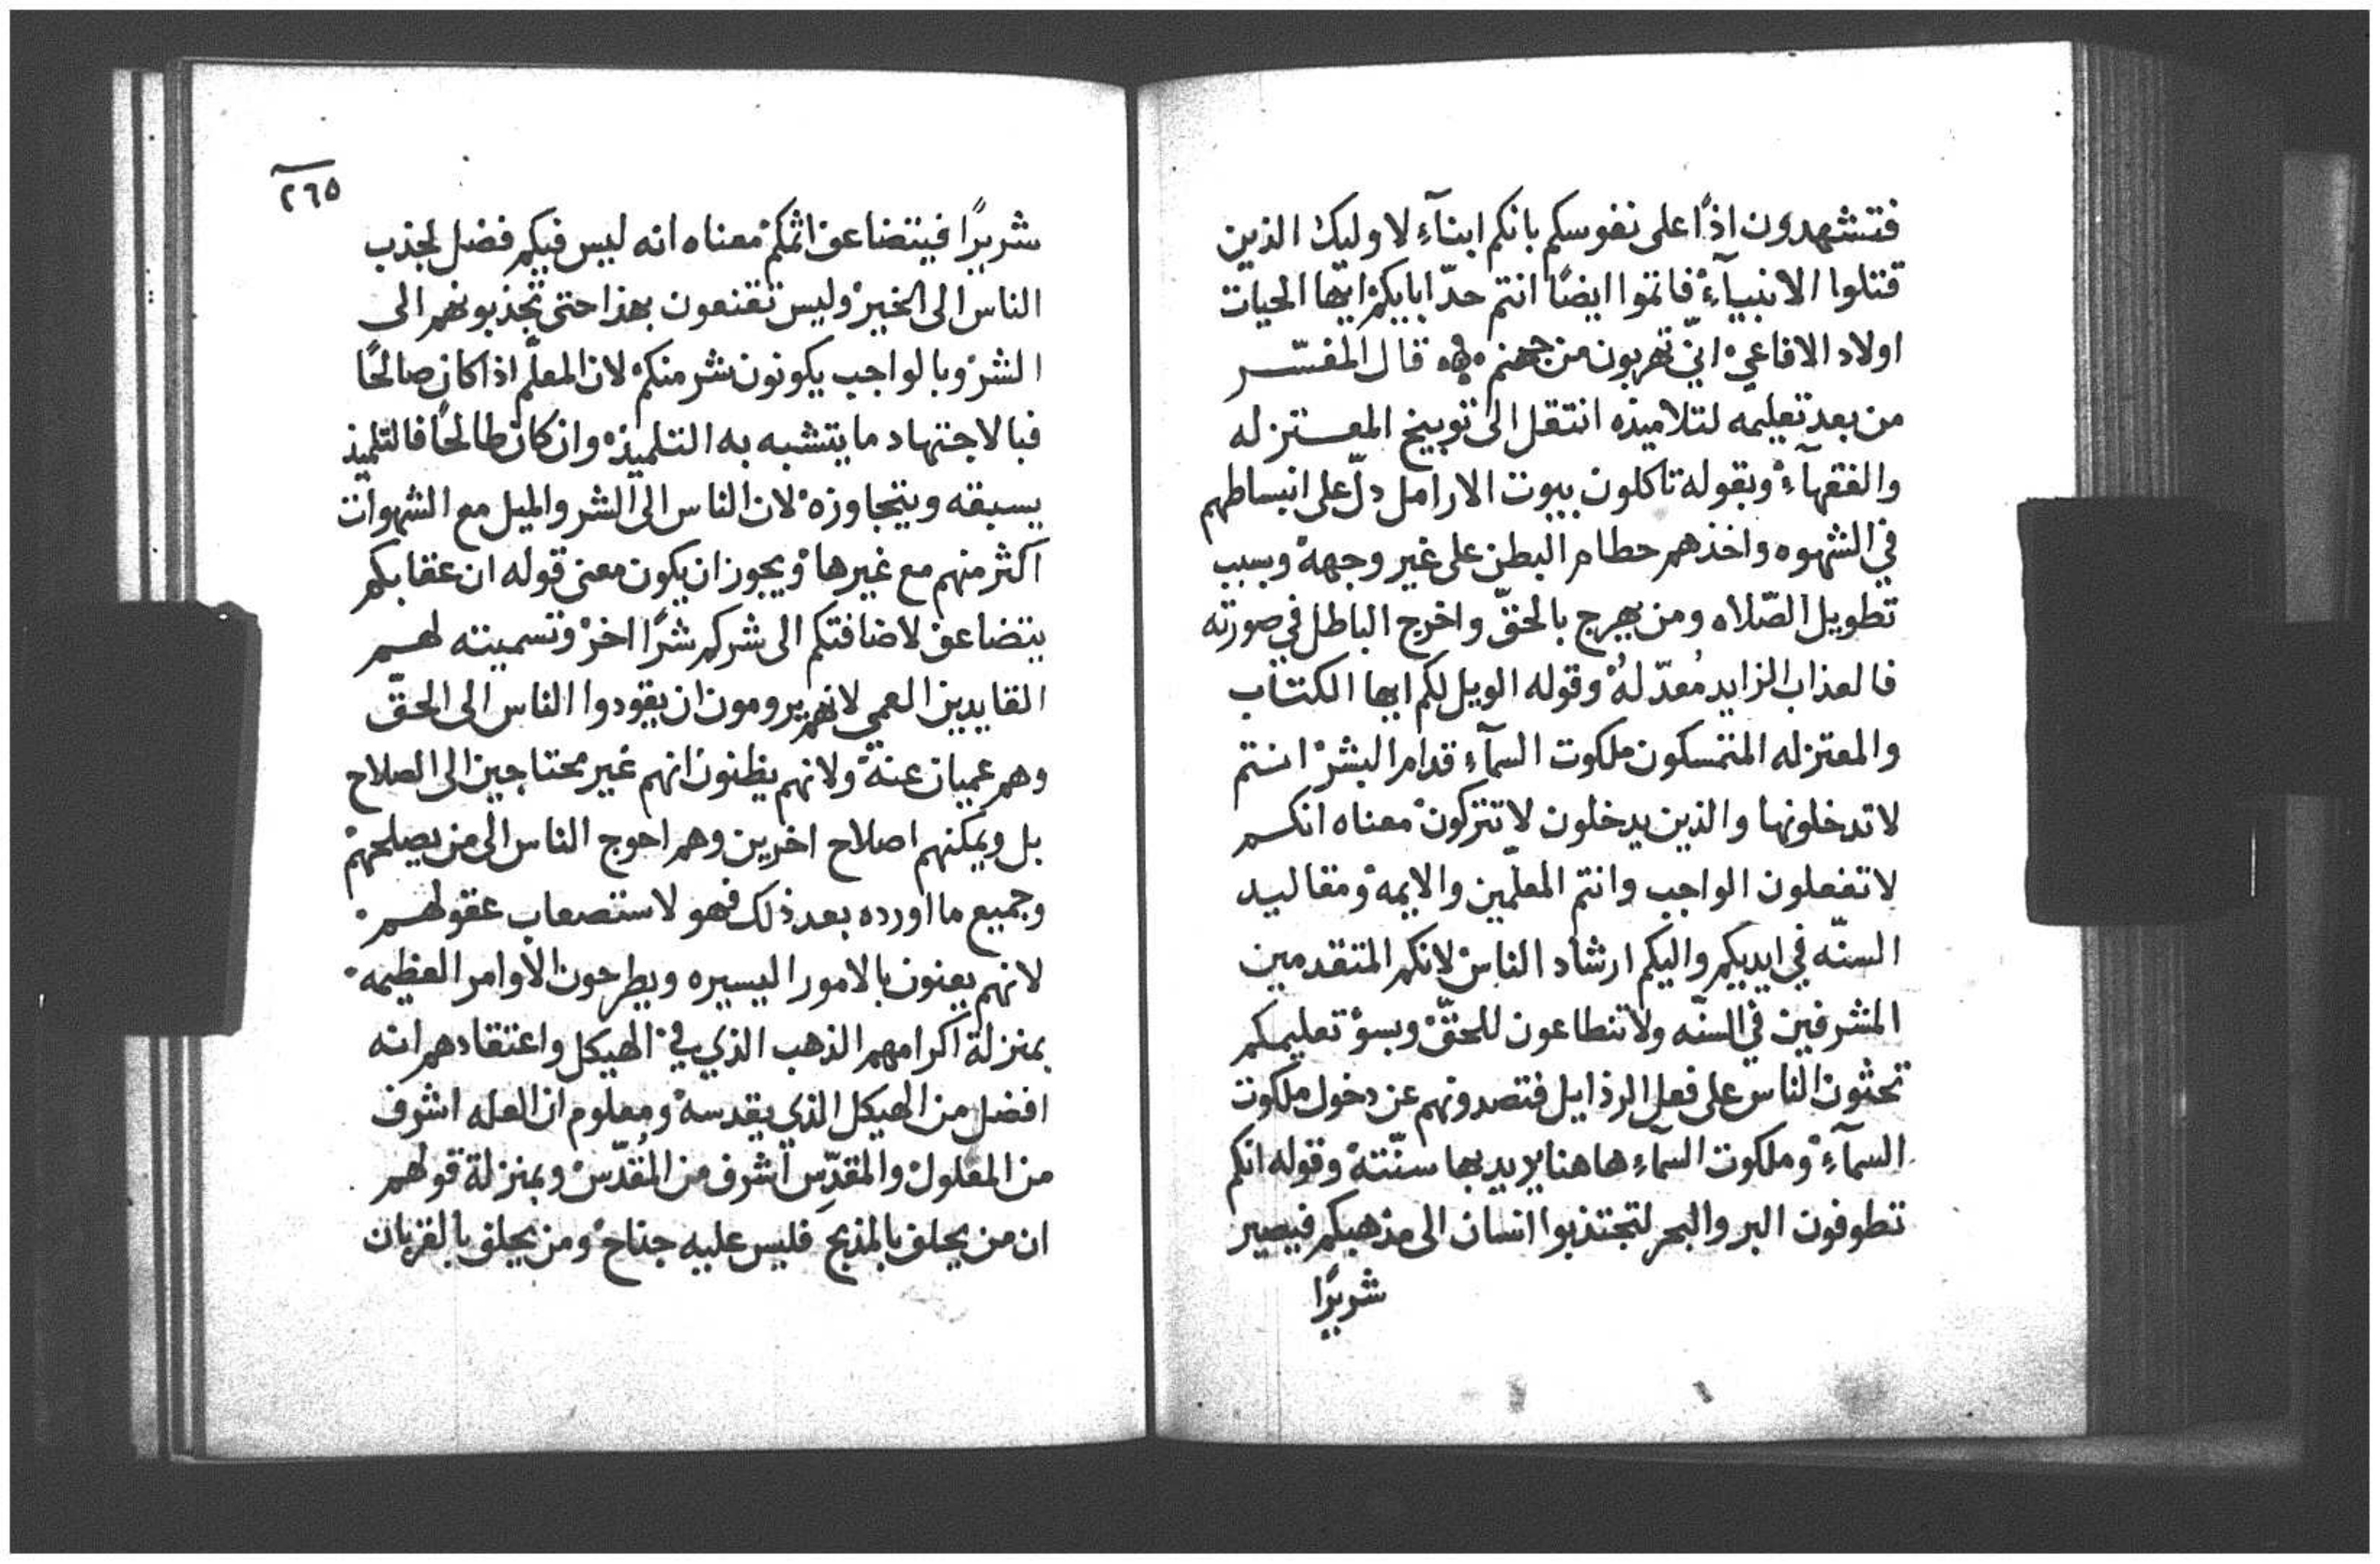 فتشهدون اذًا على نفوسكم بانكم ابنآء لاوليك الذين
قتلوا الانبيآء فاتموا ايضًا انتم حدّ ابايكم ايها الحيات
اولاد الافاعي انّي تهربون من جهنم قال المفسّر
من بعد تعليمه لتلاميذه انتقل الى توبيخ المعتزله
والفقهآء وبقوله تاكلون بيوت الارامل دلّ على انبساطهم
في الشهوه واخذهم حطام البطن على غير وجهه وبسبب
تطويل الصّلاه ومن بهرج بالحقّ واخرج الباطل في صورته
فالعذاب الزايد مُعدّ لهُ وقوله الويل لكم ايها الكتاب
والمعتزله المتمسكون ملكوت السمآء قدام البشر انتم
لا تدخلونها والذين يدخلون لا تتركون معناه انكم
لا تفعلون الواجب وانتم المعلّمين والايمه ومقاليد
السنّه في ايديكم واليكم ارشاد الناس لانكم المتقدمين
المشرفين في السنّه ولا تنطاعون للحقّ وبسؤ تعليمكم
تحثون الناس على فعل الرذايل فتصدونهم عن دخول ملكوت
السمآء وملكوت السمآء هاهنا يريد بها سنّته وقوله انكم
تطوفون البر والبحر لتجتذبوا انسان الى مذهبكم فيصير
شريرًا
٢٦٥
شريرًا فيتضاعف اثمكم معناه انه ليس فيكم فضل لجذب
الناس الى الخير وليس تقنعون بهذا حتى تجذبونهم الى
الشر وبالواجب يكونون شر منكم لان المعلّم اذا كان صالحًا
فبالاجتهاد ما يتشبه به التلميذ وان كان طالحًا فالتلميذ
يسبقه ويتجاوزه لان الناس الى الشر والميل مع الشهوات
اكثر منهم مع غيرها ويجوز ان يكون معنى قوله ان عقابكم
يتضاعف لاضافتكم الى شركم شرًا اخر وتسميته لهم
القايدين العمي لانهم يرومون ان يقودوا الناس الى الحقّ
وهم عميان عنه ولانهم يظنون انهم غير محتاجين الى الصلاح
بل ويمكنهم اصلاح اخرين وهم احوج الناس الى من يصلحهم
وجميع ما اورده بعد ذلك فهو لاستصعاب عقولهم
لانهم يعنون بالامور اليسيره ويطرحون الاوامر العظيمه
بمنزلة اكرامهم الذهب الذي في الهيكل واعتقادهم انه
افضل من الهيكل الذي يقدسه ومعلوم ان العله اشرف
من المعلول والمقدِّس اشرف من المُقدّس وبمنزلة قولهم
ان من يحلف بالمذبح فليس عليه جناح ومن يحلف بالقربان